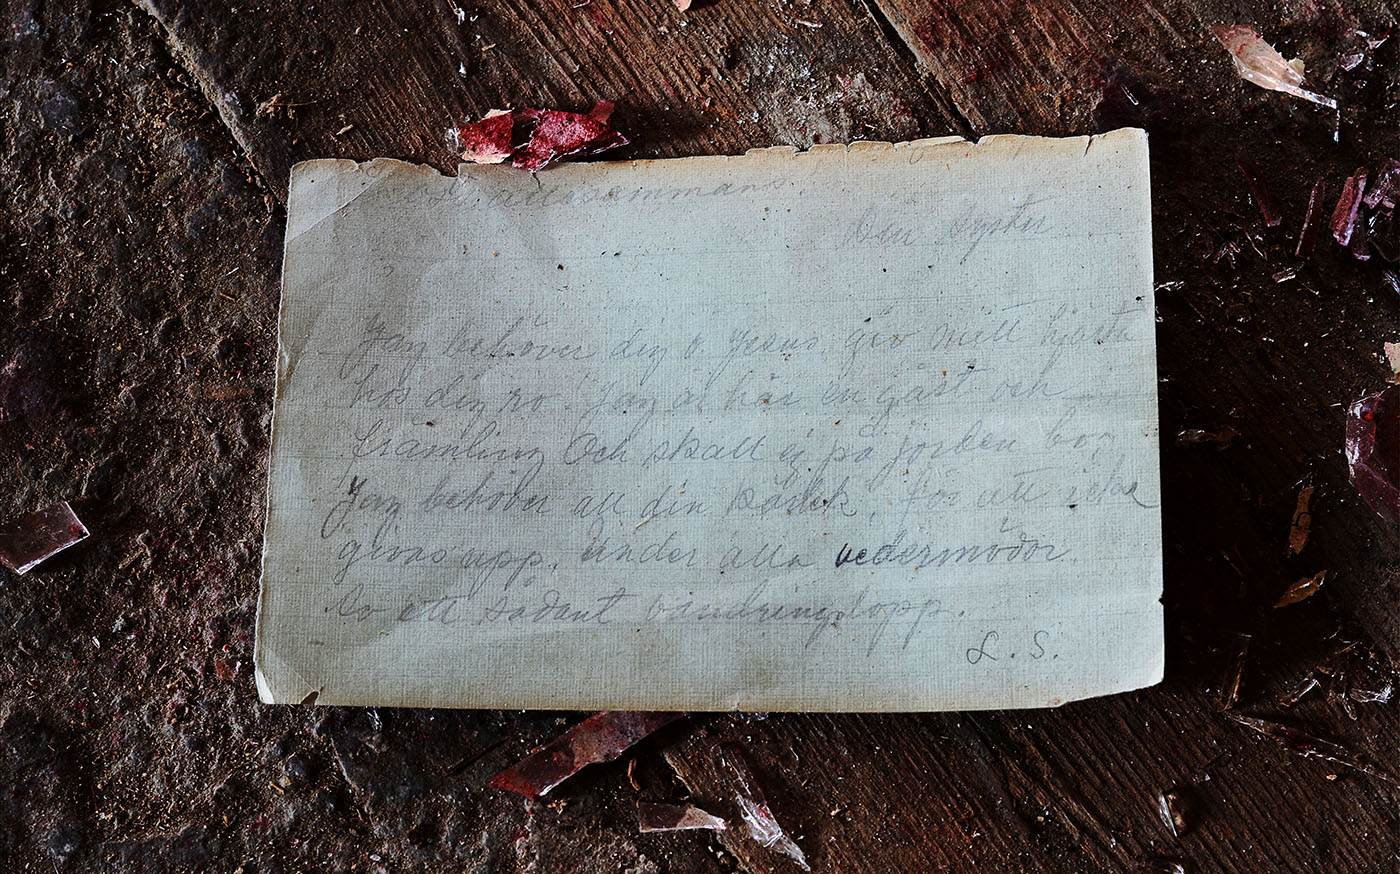 allasammans.
Din Syster
Jag behöver dig o Jesus giv mitt hjärta
hos dig ro! Jag är här en gäst och
främling Och skall ej på jorden bo,
Jag behöver all din kärlek, för att icke
givas upp. Under alla vedermödor
ett sådant vandringslopp.
L. S.